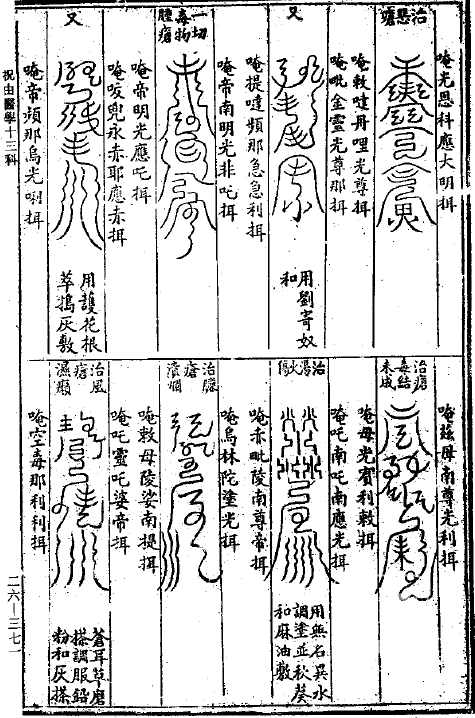 治惡瘡
唵光思科應大明揖
唵敕噠丹哩光尊揖
唵吡金靈光尊那揖
又
用劉寄奴
和
唵提噠頻那急急利揖
唵帝南明光非吒揖
一切
毒物
腫瘡
唵帝明光應吒揖
唵咬兜永赤耶應赤揖
又
用護花根
萃搗灰敷
唵帝頻那烏光唎揖
治瘡
毒結
未成
唵茲母南光利揖
唵母光賓利敕揖
唵吒南吒南應光揖
治湯
火傷
用無名異水
調塗並秋葵
和麻油敷
唵赤吡陵南尊帝揖
唵烏林陀塗光揖
治膿
瘡
潰爛
唵敕母陵娑南提揖
唵吒靈吒婆帝揖
治風
瘡
濕癩
蒼耳草磨
搽調服鉛
粉和灰搽
唵空毒那利利揖
祝由醫學十三科
二六－三七一